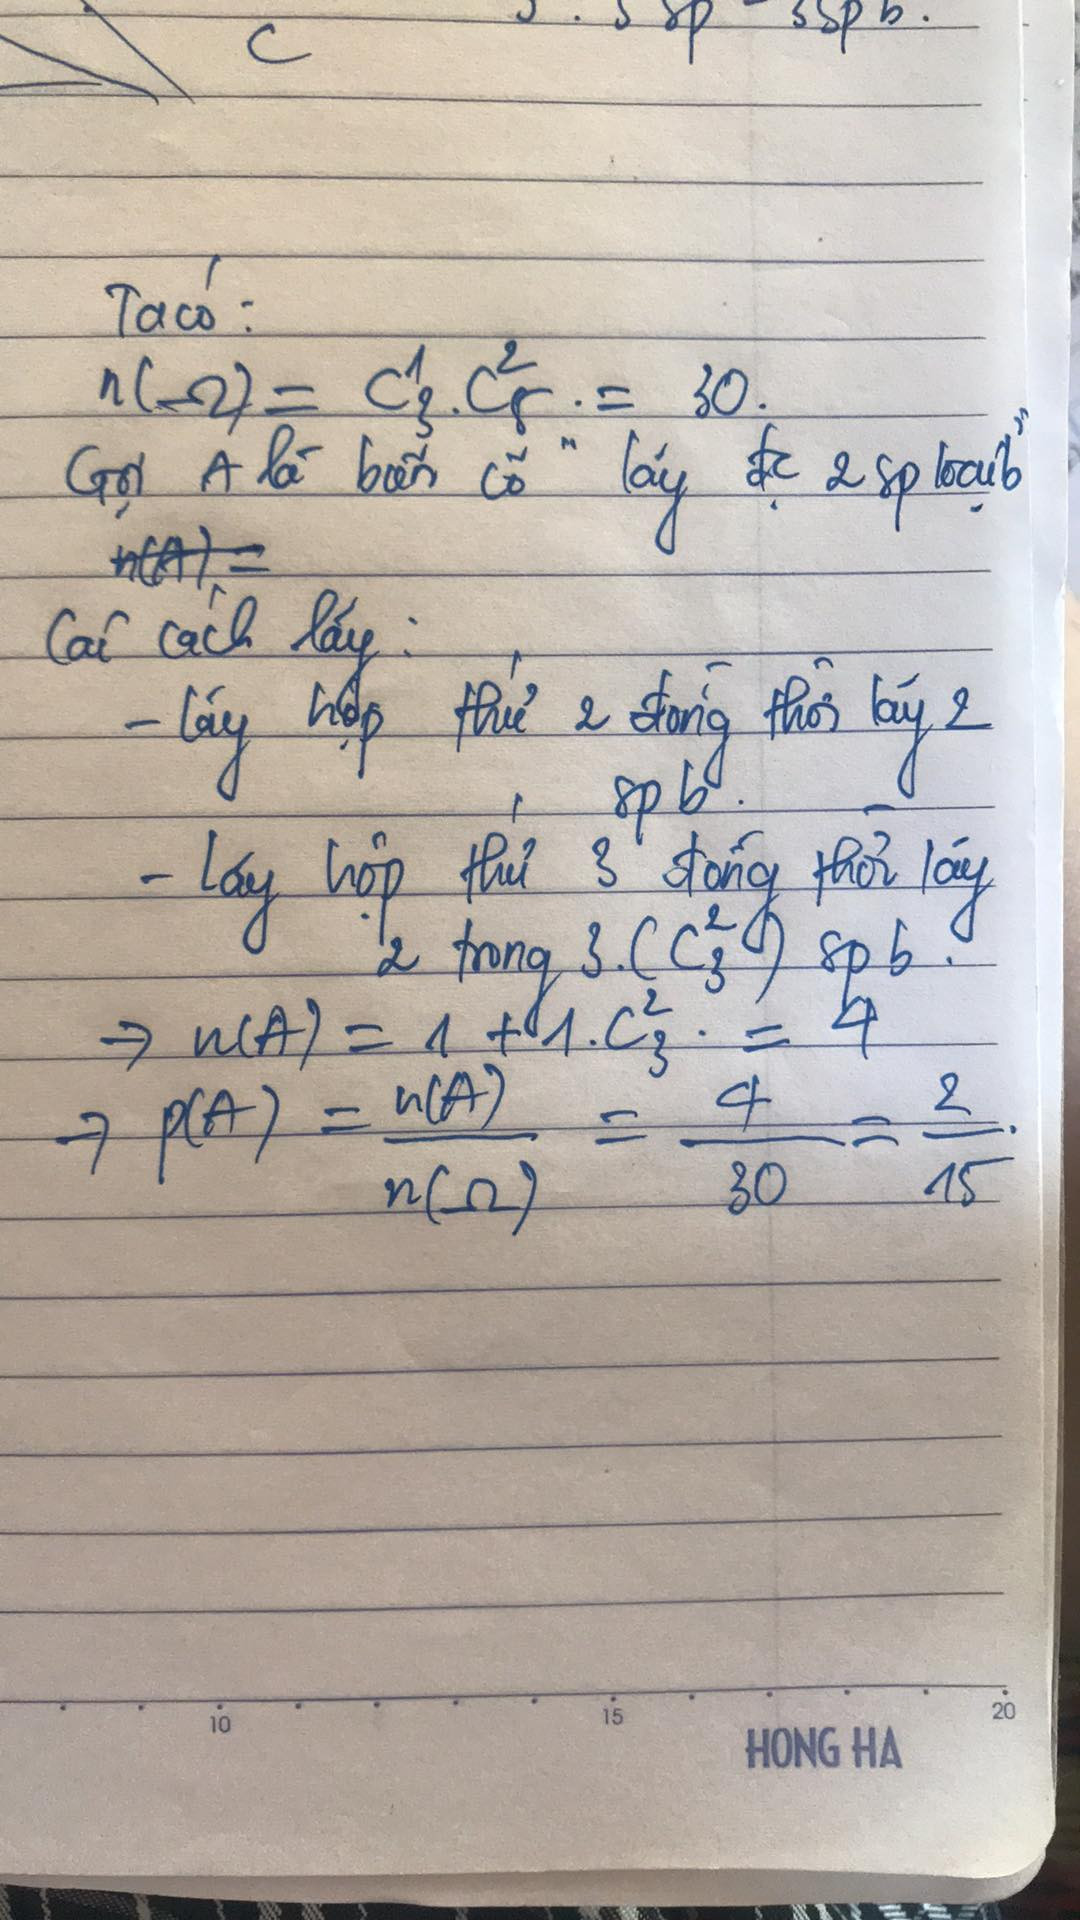 C
3 sp - 3 sp b.
Ta có:
n(Ω) = C¹₃.C²₅. = 30.
Gọi A là biến cố "lấy đc 2 sp loại b"
n(A) =
Các cách lấy:
- lấy hộp thứ 2 đồng thời lấy 2
sp b.
- Lấy hộp thứ 3 đồng thời lấy
2 trong 3.(C²₃) sp b.
→ n(A) = 1 + 1.C²₃. = 4
→ p(A) = n(A)/n(Ω) = 4/30 = 2/15.
10 15 20
HONG HA